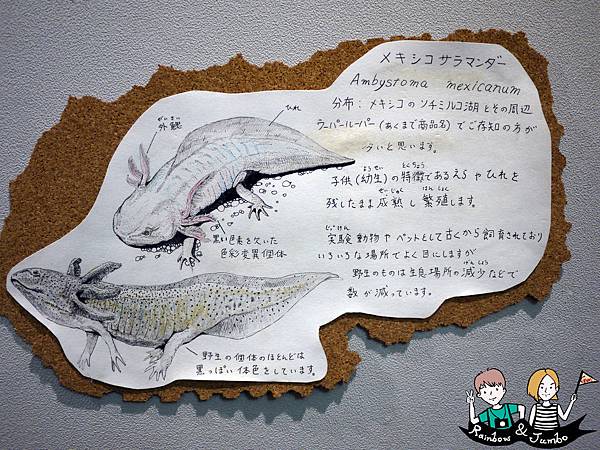 メキシコサラマンダー
Ambystoma mexicanum
分布：メキシコのソチミルコ湖とその周辺
ウーパールーパー(あくまで商品名)でご存知の方が
多いと思います。
ようせい とくちょう
子供(幼生)の特徴であるえらやひれを
せいじゅく はんしょく
残したまま成熟し繁殖します。
じっけん
実験動物やペットとして古くから飼育されており
いろいろな場所でよく目にしますが
げんしょう
野生のものは生息場所の減少などで
数が減っています。
がいさい
外鰓
ひれ
黒い色素を欠いた
色彩変異個体
野生の個体のほとんどは
黒っぽい体色をしています。
Rainbow & Jumbo